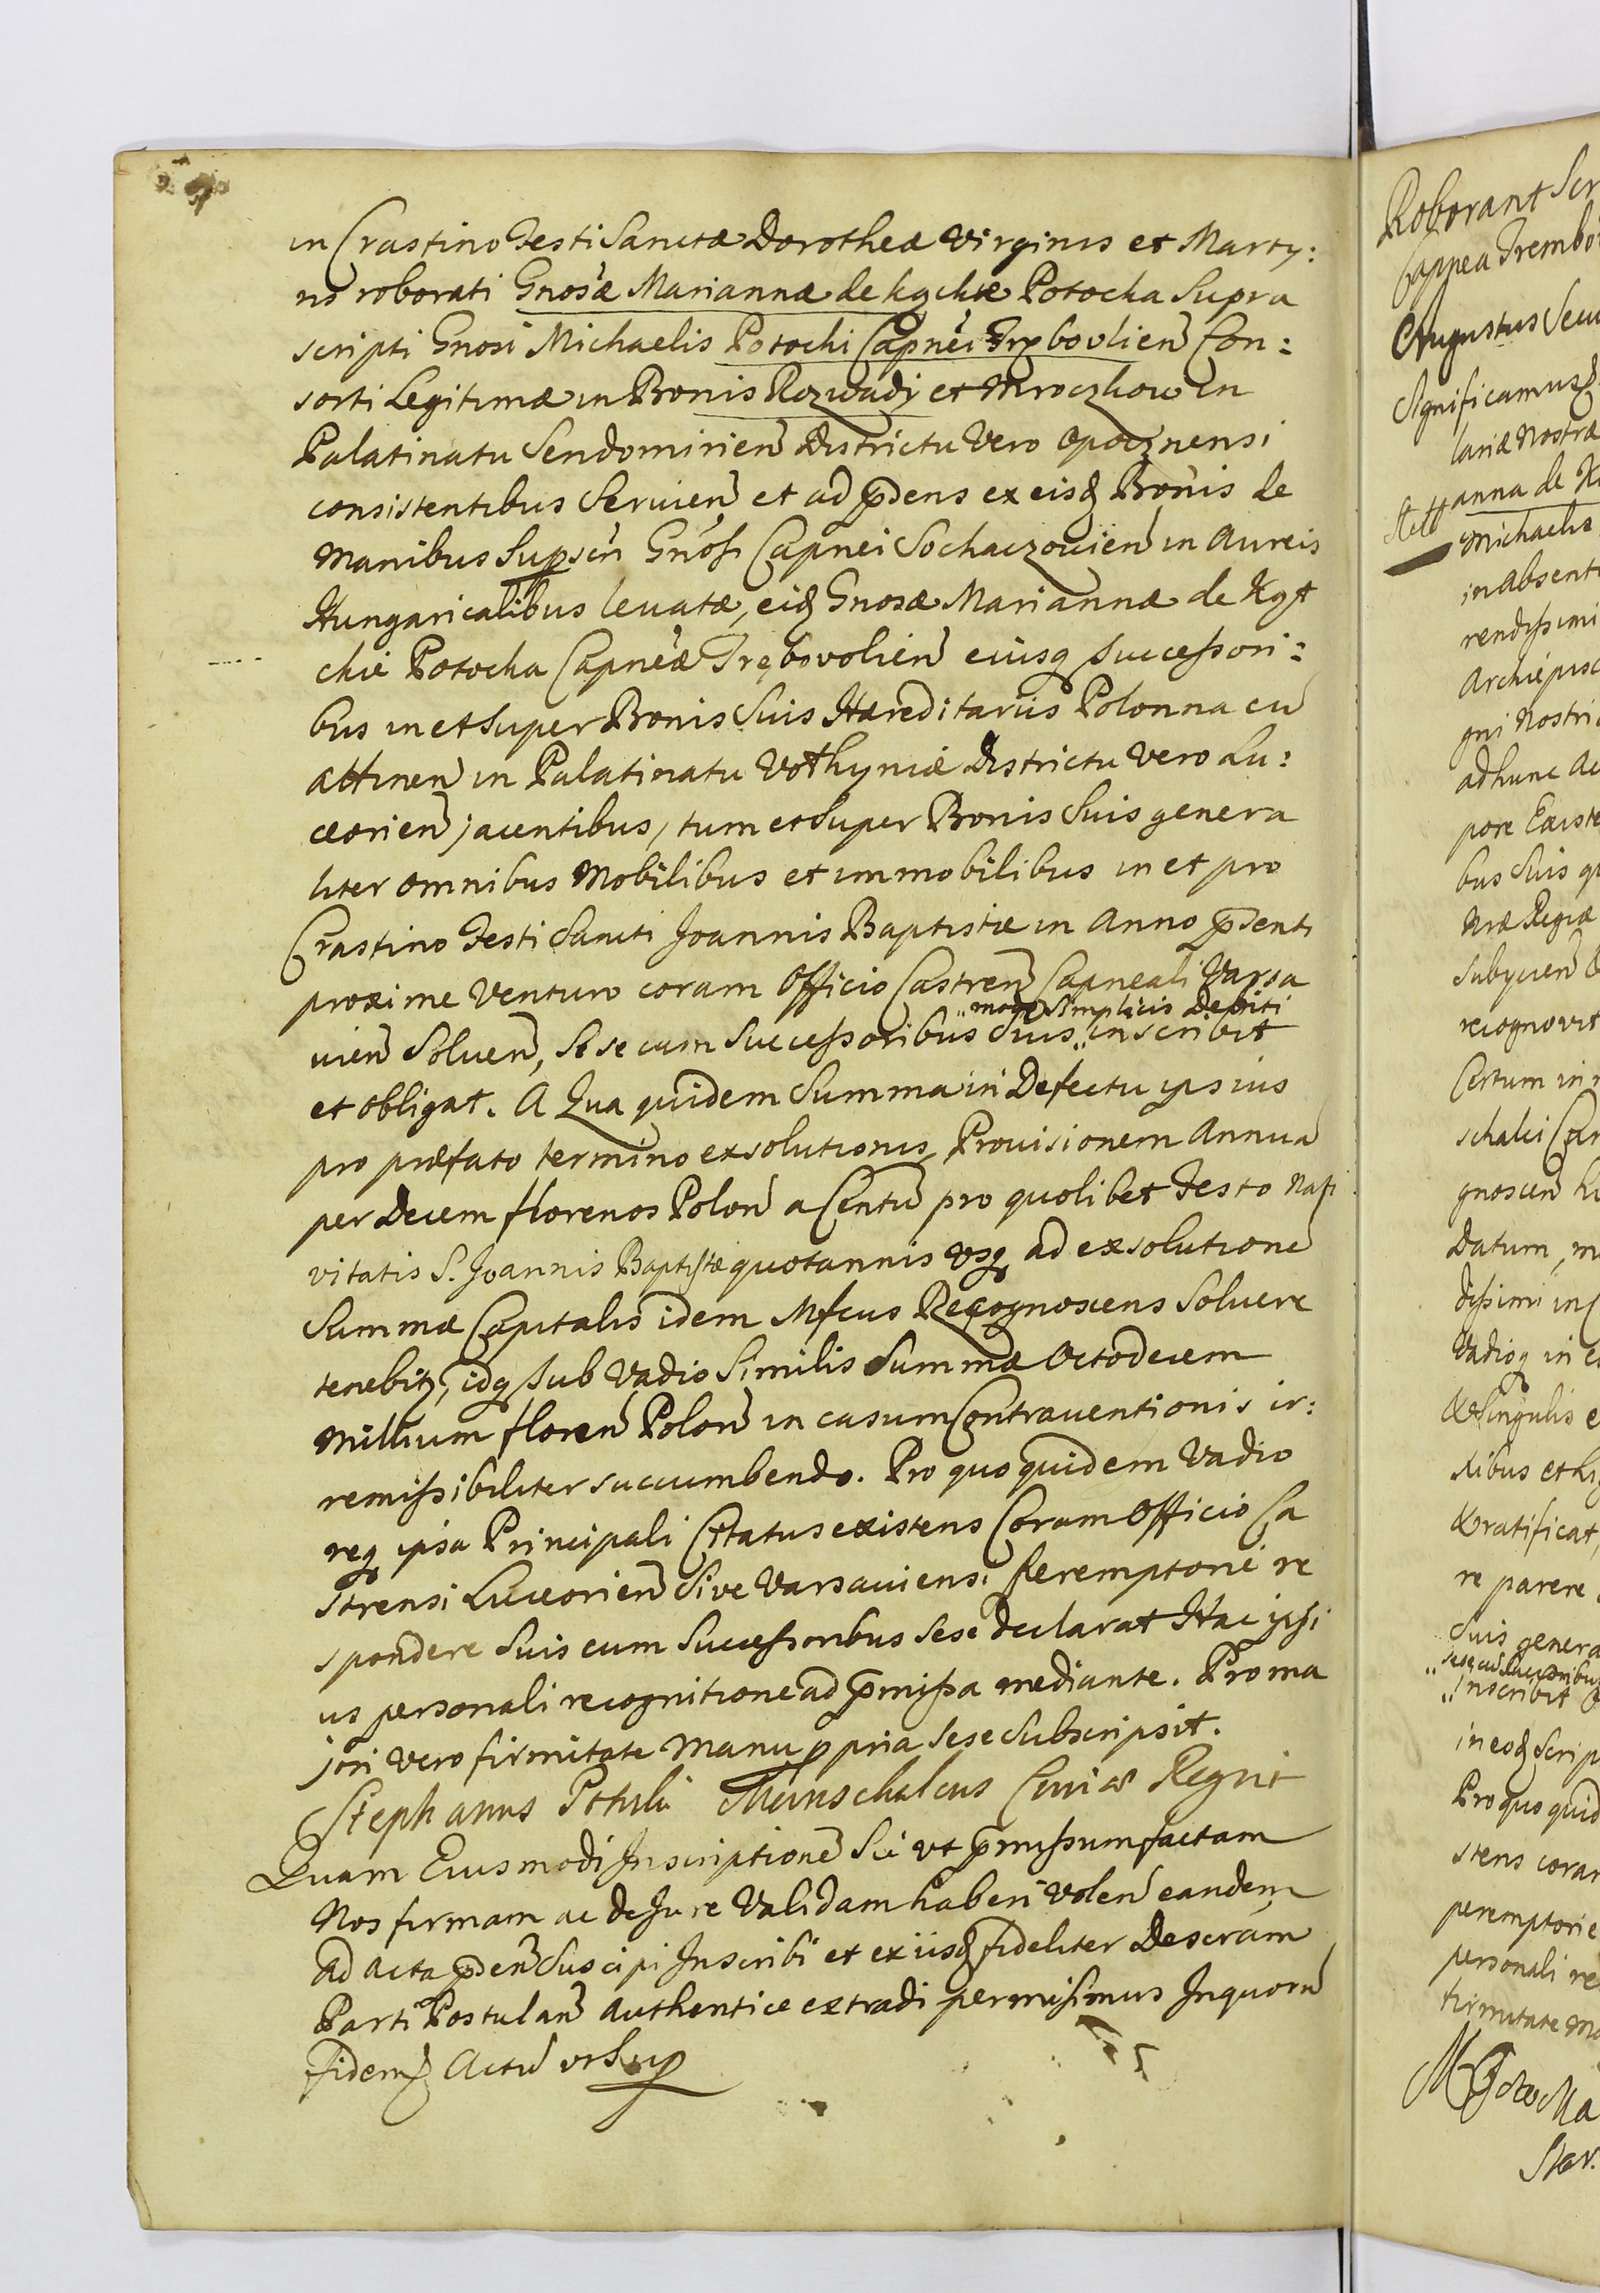 in Crastino Festi Sanctæ Dorotheæ Virginis et Marty:
ris roborati Gnosæ Mariannæ de Kąckie Potocka Supra
scripti Gnosi Michaelis Potocki Capnei Tręboulien Con:
sorti Legitimæ in Bonis Rozwady et Mroczkow in
Palatinatu Sendomirien Districtu Vero Opocznensi
consistentibus Seruien et ad p̄dens ex eisq̃ Bonis de
Manibus Supscri Gnosi Capnei Sochaczouien in Aureis
Hungaricalibus leuatæ, eiq̃ Gnosæ Mariannæ de Kąt
ckie Potocka Capneæ Trębovolien eiusq̃ successori:
bus in et super Bonis Suis Hæreditariis Polonna cu
attinen in Palatinatu Volhyniæ Districtu Vero Lu:
ceorien jacentibus, tum et super Bonis Suis genera
liter omnibus Mobilibus et immobilibus in et pro
Crastino Festi Sancti Joannis Baptistæ in Anno p̄senti
proxime Venturo coram Officio Castren Capneali Varsa
„more Simplicis Debiti
uien Soluen, se se cum Successoribus Suis „inscribit
et obligat. A Qua quidem Summa in Defectu ipsius
pro præfato termino exsolutionis, Prouisionem Annua
per Decem florenos Polon a Centu pro quolibet Festo Nati
vitatis S. Joannis Baptistæ quotannis vsq̃ ad exsolutione
Summæ Capitalis idem Mfcus Recognoscens Soluere
tenebit, idq̃ sub Vadio Similis Summæ Octodecem
Millium floren Polon in casum Contrauentionis ir:
remissibiliter succumbendo. Pro quo quidem Vadio
req̃ ipsa Principali Citatus existens Coram Officio Ca
strensi Luceorien Sive Varsauiensi peremptorie re
spondere Suis cum Successoribus sese declarat Hac ipsi
us personali recognitione ad p̄missa mediante. Pro ma
jori vero firmitate manu p̱pria sese Subscripsit.
Stephanus Marschalcus Curiæ Regni
Quam Eiusmodi Inscriptione Sic vt p̄missum factam
Nos firmam ac de Jure Validam haberi volen eandem
ad acta p̄sen Suscipi Inscribi et ex iisq̃ fideliter Descram
Parti Postulan authentice extradi permisimus Inquoru
fidem Actu vt Sup
Roborant Scr
Cappea Trembo
Augustus Secu
significamusq̃
lariæ Nostræ
anna de K
Michaelis
in absenti
rendissimi
Archiepisc
gni Nostri
ad hunc Ac
pore Existe
bus Suis q
Nræ Regiæ
Subijcien
recognovit
Certum in
schalci Cur
gnoscen
Datum, m
dissimi in
Vadioq̃ in
& Singulis e
libus et
& ratificat,
re parere
Suis genera
„Inscribit
in eoq̃ Scrip
Pro quo quid
stens coram
peremptorie
personali re
firmitate ma